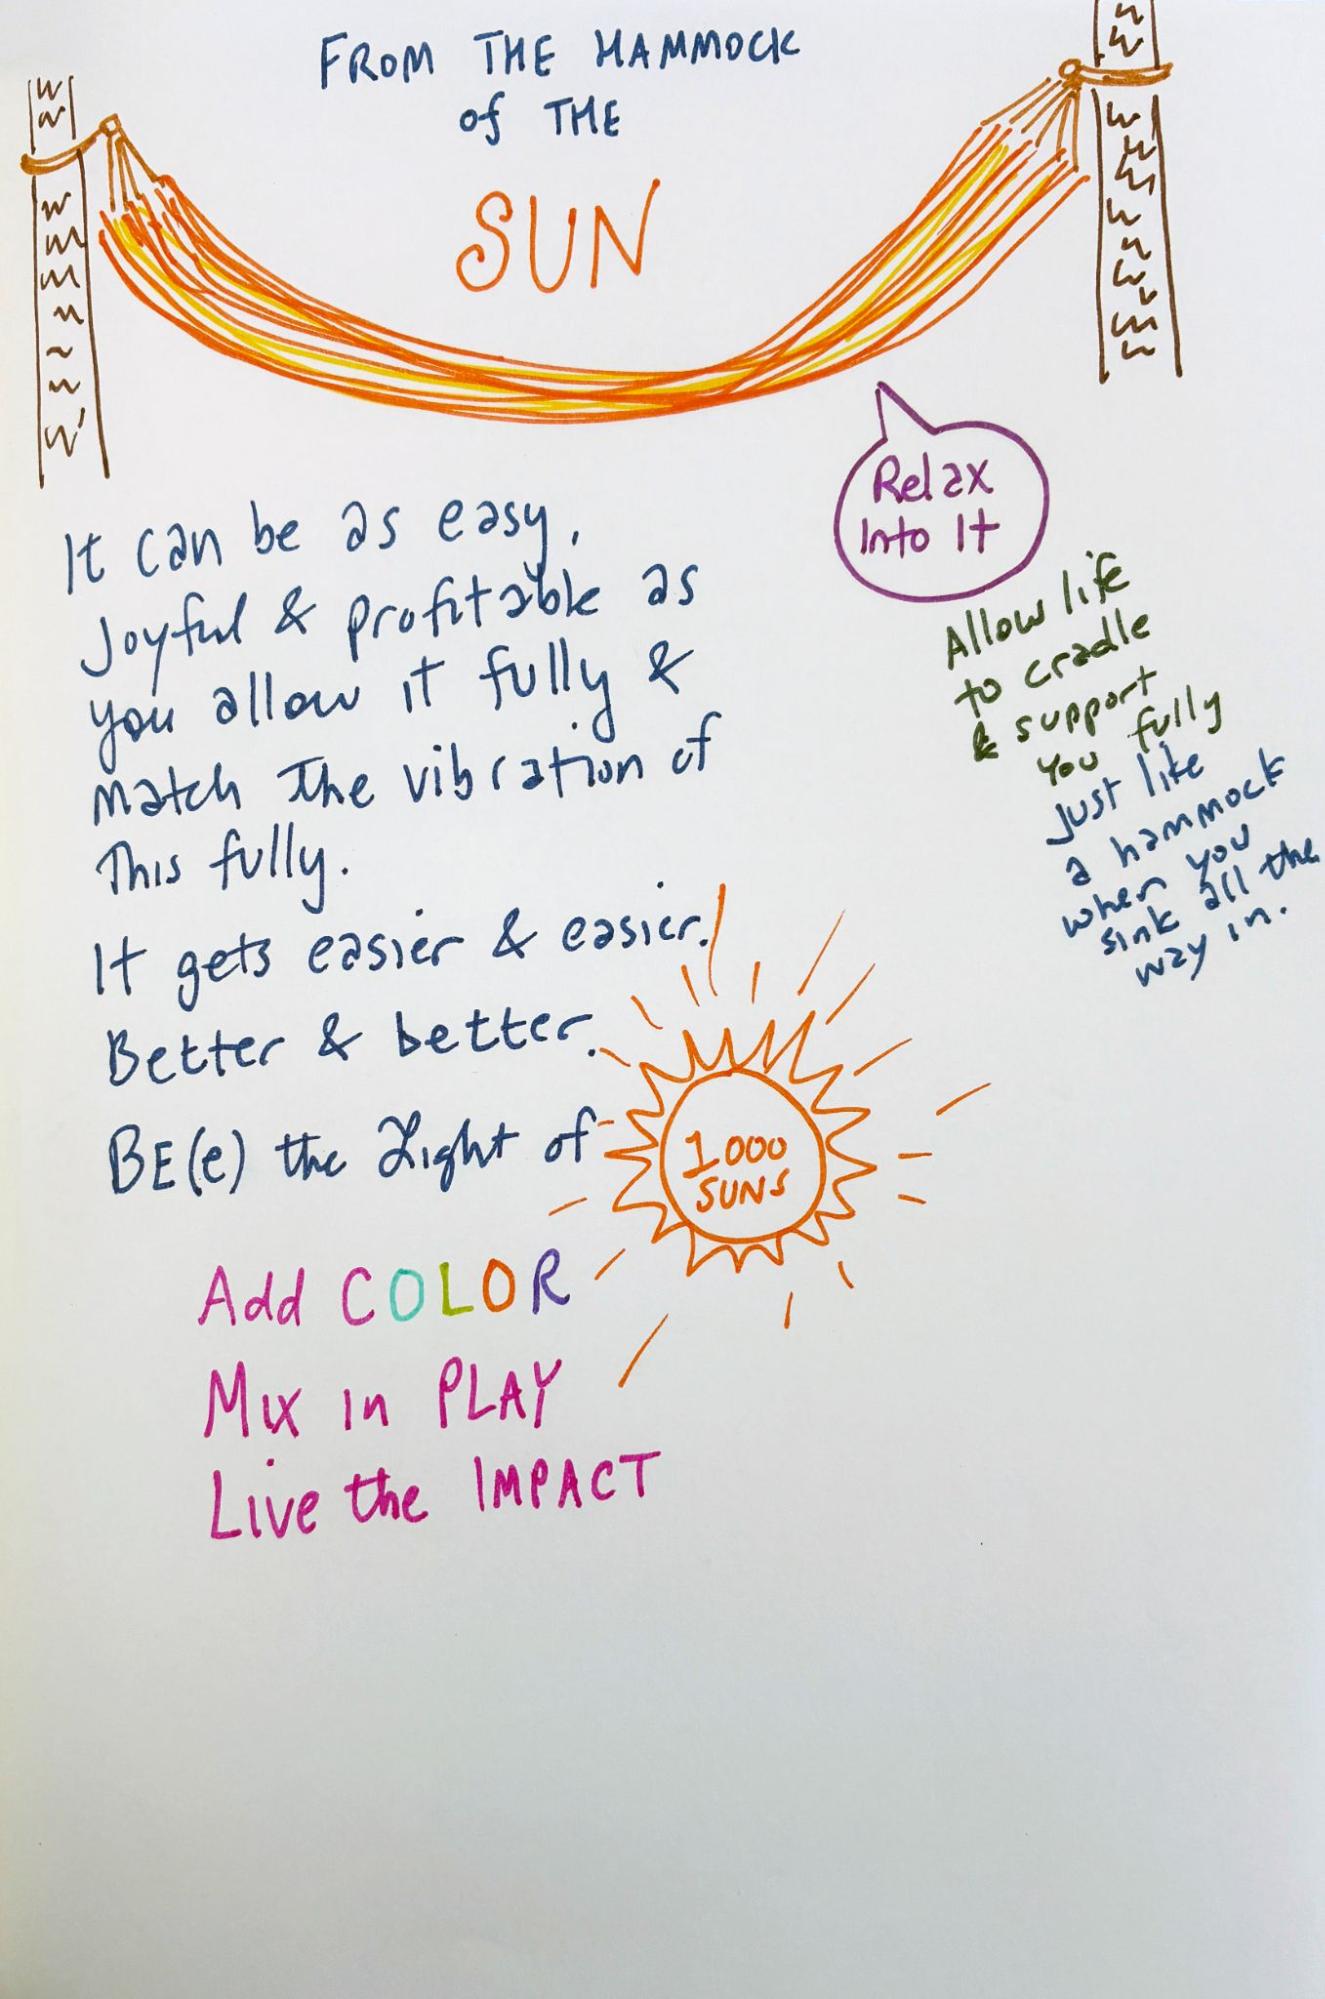 FROM THE HAMMOCK
of THE
SUN
Relax
Into It
It can be as easy,
Joyful & profitable as
you allow it fully &
match the vibration of
This fully.
It gets easier & easier.
Better & better.
BE(e) the Light of
1000
SUNS
Allow life
to cradle
& support
you fully
Just like
a hammock
when you
sink all the
way in.
Add COLOR
Mix in PLAY
Live the IMPACT